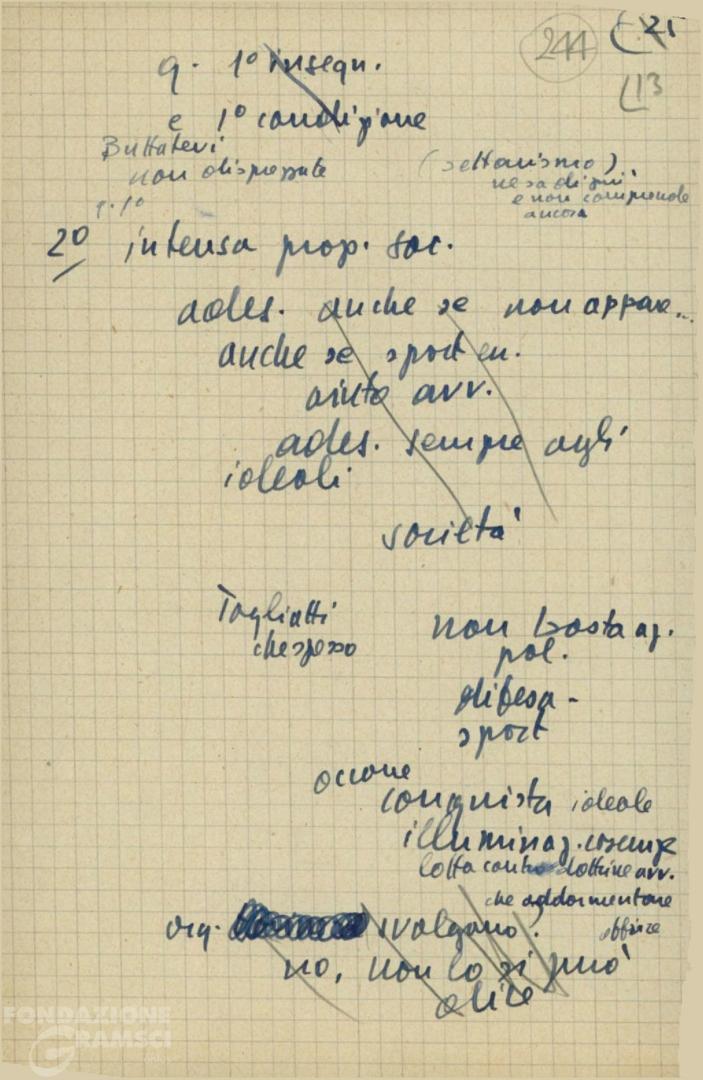 244
21
13
q. 1º insegn.
e 1º condizione
Buttatevi
non disprezzate
(settarismo)
ne sa di più
e non comprende
ancora
2º intensa prop. soc.
ades. anche se non appare..
anche se sport en.
aiuta avv.
ades. sempre agli
ideali
società
Togliatti
che spesso
non basta az.
pol.
difesa -
sport
occorre
conquista ideale
illuminaz. coscienze
lotta contro dottrine avv.
che addormentano
org. svolgano?
no, non lo si può
dire
FONDAZIONE
GRAMSCI